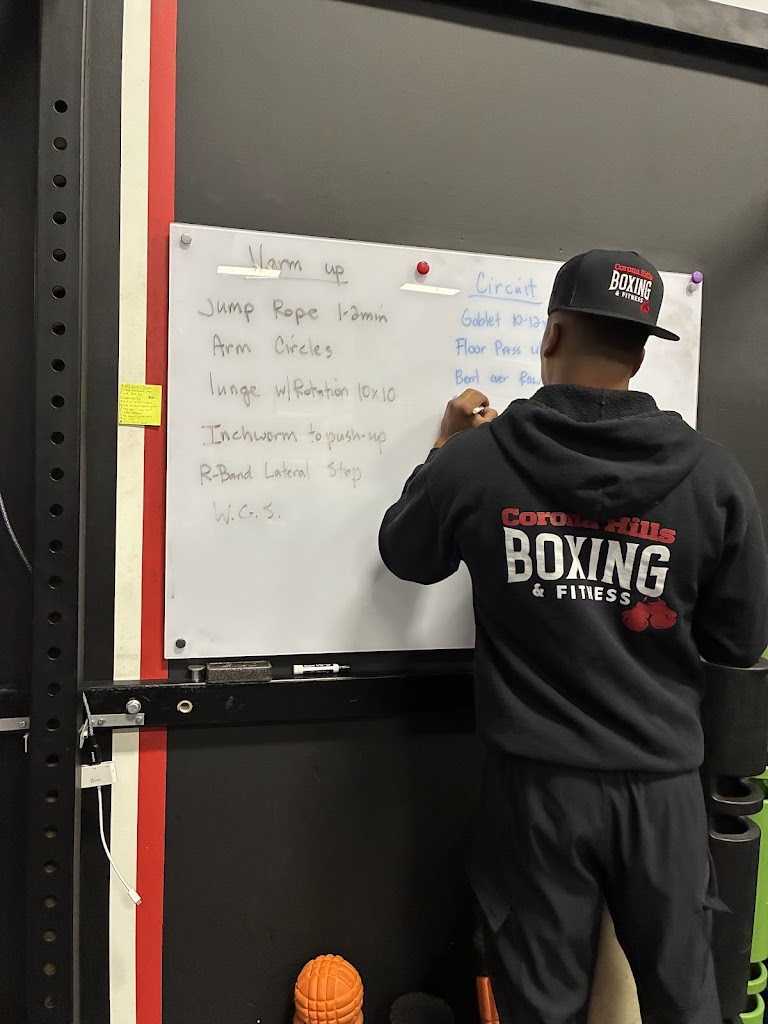 Warm up
Jump Rope 1-2min
Arm Circles
lunge w/Rotation 10x10
Inchworm to push-up
R-Band Lateral Step
W.G.S.
Circuit
Goblet 10-12
Floor Press
Bent over Row
Corona Hills
BOXING
& FITNESS
Corona Hills
BOXING
& FITNESS